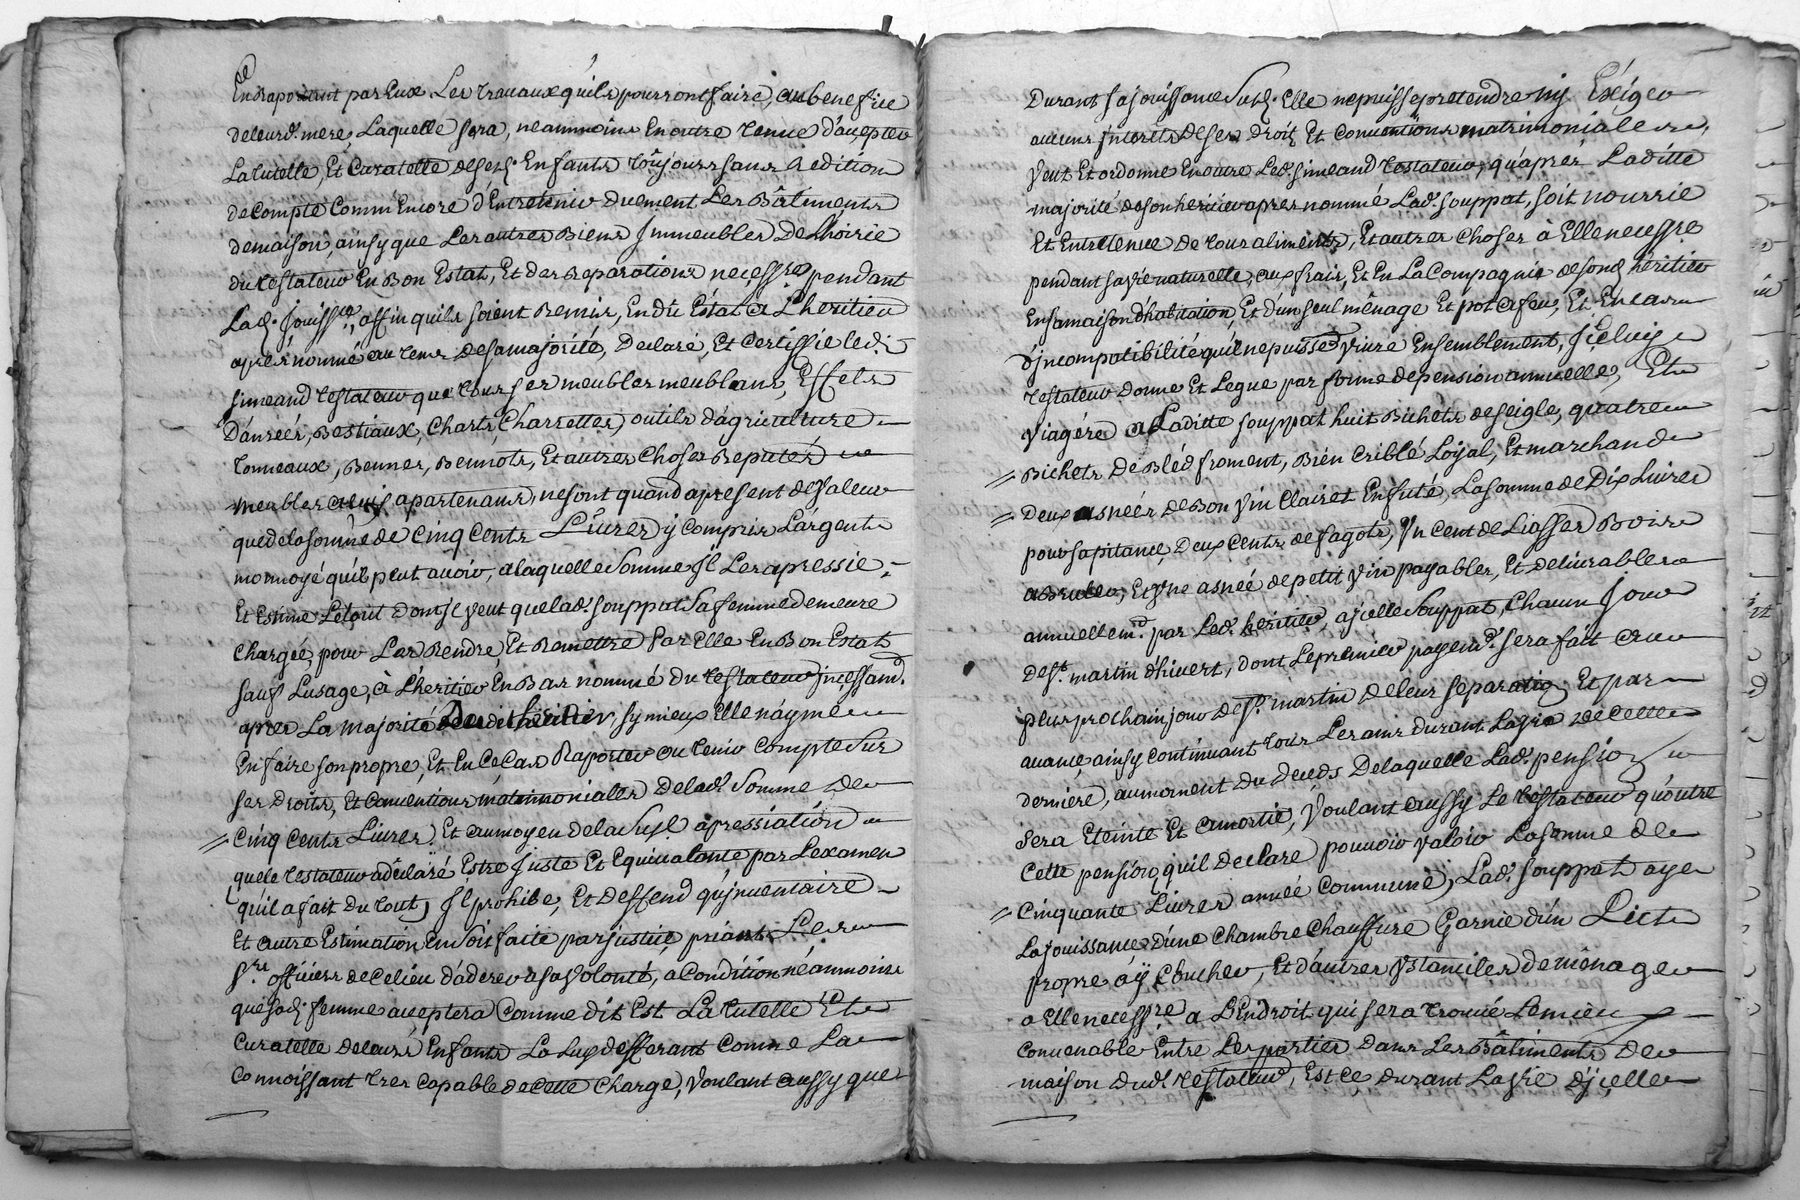 En Raportant par Eux Les travaux qu'ils pourront faire, au benefice
de leurd. mere, Laquelle sera, neammoins En outre tenue d'accepter
La tutelle, Et Curatelle desesd. Enfants toujours sans Redition
de compte Comm'Encore d'Entretenir duement Les Bâtiments
de maison, ainsy que Les autres Biens Immeubles De Lhoirie
du testateur En Bon Estat, Et des Reparations necessres pendant
Lad. Jouissce, affin quils soient Remis, En du Estat a L'heritier
aprés nommé au tems de sa majorité, Declaré, Et Certiffié led.
simeand testateur que tous ses meubles meublans, Effets
Danrées, Bestiaux, Charts, Charrettes, outils d'agriculture
tonneaux, Bennes, Bennots, Et autres Choses Reputés
meubles a luy apartenans, ne sont quand apresent de Valeur
que de la somme de Cinq Cents Livres y Compris L'argent
monnoyé qu'il peut avoir, a laquelle Somme Il Les apressie,
Et Estime Letout dont Il veut que lad. souppat Sa femme demeure
Chargée, pour Les Rendre, Et Remettre Par Elle En Bon Estat
sauf Lusage, à L'héritier En Bas nommé du testateur Incessamt.
aprés La majorité Dud. heritier, sy mieux Elle n'ayme
En faire son propre, Et En Ce Cas Raporter ou tenir Compte Sur
ses Droits, Et Conventions matrimoniales de lad. Somme De
Cinq Cents Livres. Et au moyen de la Susd. apressiation
que le testateur a déclaré Estre Juste Et Equivalente, par L'examen
qu'il a fait du tout, Il prohibe, Et deffend qu'Inventaire
Et autre Estimation En Soit faite par justice, priant Les
Srs. officiers de Ce lieu d'aderer a sa Volonté, a Condition néammoins
que sad. femme acceptera Comme dit Est La tutelle Et
Curatelle de leurs Enfants La Luy defferant Comme La
Connoissant tres Capable de Cette Charge, Voulant aussy que
Durant sa jouissance Susd. Elle ne puisse pretendre ny Exiger
aucuns Interets de ses Droits Et Conventions matrimoniales,
Veut Et ordonne En outre Led. simeand testateur, qu'aprés Laditte
majorité de son heritier apres nommé Lad. souppat, soit nourrie
Et Entretenue de tous aliments, Et autres Choses à Elle necessre
pendant sa Vie naturelle, aux frais, Et En La Compagnie de sond. héritier
En sa maison d'habitation, Et d'un seul mênage Et pot a feu, Et En Cas
d'Incompatibilité qu'il ne puissent Vivre Ensemblement, Iceluy
testateur donne Et Legue par forme de pension annuelle, Et
Viagére a Laditte souppat huit Bichets de seigle, quatre
Bichets De Bléd froment, Bien Criblé Loyal, Et marchand
Deux asnées de Bon Vin Clairet En futé, La somme de Dix Livres
pour sa pitance, Deux Cents de fagots, Vn Cent de Liasses Bois
a Bruler, Et Vne asnée de petit Vin payables, Et delivrables
annuellemt. par Led. héritier, a jcelle Souppat, Chacun Jour
de St. martin d'hivert, dont Le premier payemt. sera fait au
plus prochain jour de St. martin de leur separation Et par
avance, ainsy Continuant tous Les ans durant La Vie de Celle
derniere, au moment du deceds De laquelle Lad. pension
sera Eteinte Et amortie, Voulant aussy Le testateur qu'outre
Cette pension, quil declare pouvoir Valoir La somme de
Cinquante Livres année Commune, Lad. Souppat aye
La jouissance d'une Chambre Chauffure Garnie d'un Lict
propre a y Coucher, Et d'autres Vstanciles de mênage
a Elle necessre. a L'Endroit qui sera trouvé Le mieux
Convenable Entre Les parties dans Les Bâtiments de
maison dud. testateur, Est Ce durant La Vie d'jcelle